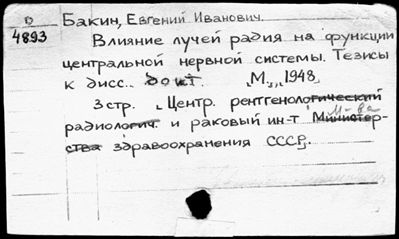 D Бакин, Евгений Иванович.
4893 Влияние лучей радия на функции
центральной нервной системы. Тезисы
к дисс.. докт. "М.", 1948
3 стр. "Центр. рентгенологический
М-ва
радиологич. и раковый ин-т Министер-
ства здравоохранения СССР".